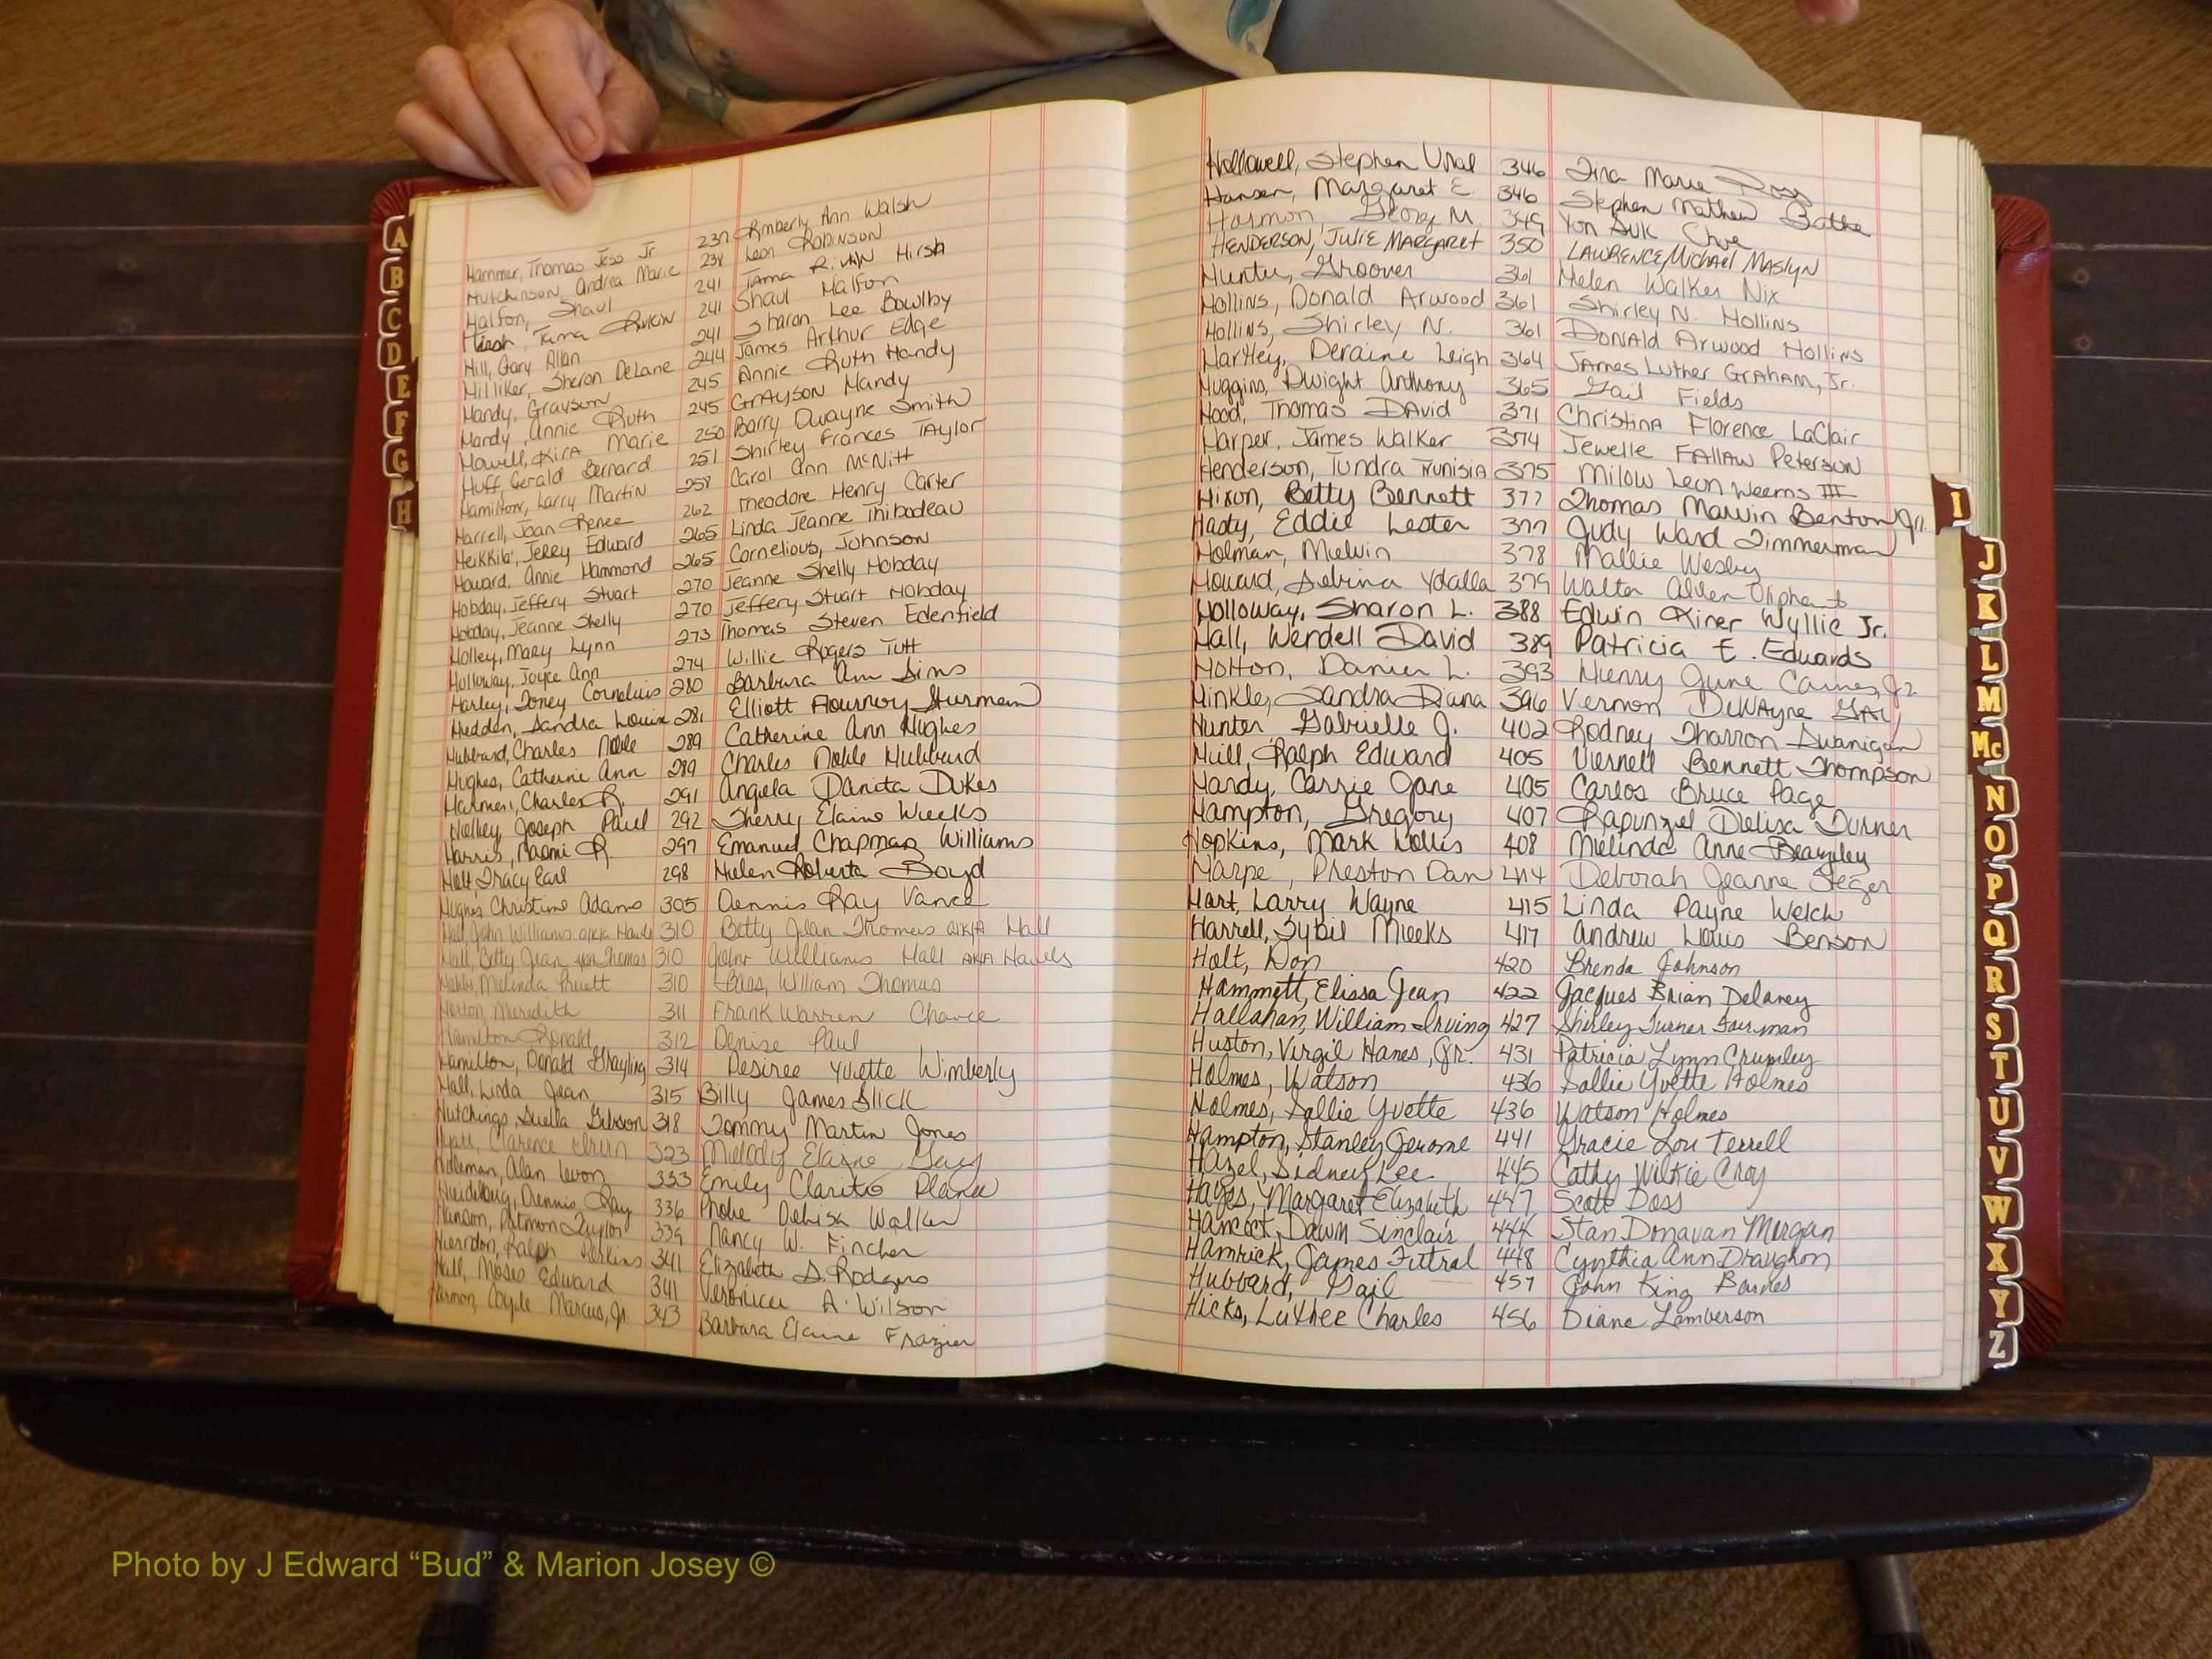 A
B
C
D
E
F
G
H
Hammer, Thomas Jess Jr 237 Kimberly Ann Walsh
Hutchinson, Andrea Marie 238 Leon RObINSON
Halfon, Shaul 241 Tama RivkiN Hirsh
Hirsh, Tama Rivkin 241 Shaul Halfon
Hill, Gary Allan 241 Sharon Lee Bowlby
Hilliker, Sharon DeLane 244 James Arthur Edge
Handy, Grayson 245 Annie Ruth Handy
Handy, Annie Ruth 245 GrAySON Handy
Howell, KirA Marie 250 Barry Dwayne Smith
Huff, Gerald Bernard 251 Shirley Frances TAylor
Hamilton, Larry Martin 258 Carol Ann McNitt
Harrell, Joan Renee 262 Theodore Henry Carter
Heikkila, Jerry Edward 265 Linda Jeanne Thibodeau
Howard, Annie Hammond 265 Cornelious, Johnson
Hobday, Jeffery Stuart 270 Jeanne Shelly Hobday
Hobday, Jeanne Shelly 270 Jeffery Stuart Hobday
Holley, Mary Lynn 273 Thomas Steven Edenfield
Holloway, Joyce Ann 274 Willie Rogers Tutt
Harley, Toney Cornelius 280 Barbara Ann Sims
Hedden, Sandra Louise 281 Elliott Flournoy Sturman
Hubbard, Charles Noble 289 Catherine Ann Hughes
Hughes, Catherine Ann 289 Charles Noble Hubbard
Harmer, Charles R. 291 Angela Danita Dukes
Holley, Joseph Paul 292 Sherry Elaine Weeks
Harris, Naomi R. 297 Emanuel Chapman Williams
Holt Tracy Earl 298 Helen Roberta Boyd
Hughes Christine Adams 305 Dennis Ray Vance
Hall, John Williams a/k/a Hawls 310 Betty Jean Thomas a/k/a Hall
Hall, Betty Jean aka Thomas 310 John Williams Hall AKA Hawls
Hobbs, Melinda Pruett 310 Bass, William Thomas
Horton, Meredith 311 Frank Warren Chance
Hamilton Ronald 312 Denise Paul
Hamilton, Donald Grayling 314 Desiree Yvette Wimberly
Hall, Linda Jean 315 Billy James Slick
Hutchings, Luella Gibson 318 Tommy Martin Jones
Hyatt, Clarence 323 Melody Elaine
Holeman, Alan Levon 333 Emily Clarito
Heidelburg, Dennis Ray 336 Phobe Delisa Walker
Hanson, Pitmon Taylor 339 Nancy W. Fincher
Herndon, Ralph Perkins 341 Elizabeth S. Rodgers
Hall, Moses Edward 341 Veronica A. Wilson
Harmon, Coyle Marcus, Jr 343 Barbara Elaine Frazier
Hollowell, Stephen Ural 346 Tina Marie Ross
Hansen, Margaret E. 346 Stephen Mathew Bathe
Harmon, George M. 349 Yon Suk Choe
HENDERSON, JULIE MARGARET 350 LAWRENCE, Michael MASlyN
Hunter, Groover 361 Helen Walker Nix
Hollins, Donald Arwood 361 Shirley N. Hollins
Hollins, Shirley N. 361 DonAld Arwood Hollins
Hartley, Deraine Leigh 364 James Luther GrAHAM, Jr.
Huggins, Dwight Anthony 365 Gail Fields
Hood, Thomas DAvid 371 ChristinA Florence LaClair
Harper, James Walker 374 Jewelle FAllaw Peterson
Henderson, Tundra Tunisia 375 Milow Leon Weems III
Hixon, Betty Bennett 377 Thomas Marvin Benton Jr.
Hasty, Eddie Lester 377 Judy Ward Zimmerman
Holman, Melvin 378 Mallie Wesby
Howard, Sebrina Ydalla 379 Walter Alden Oliphant
Holloway, Sharon L. 388 Edwin Kiner Wyllie Jr.
Hall, Werdell David 389 Patricia E. Edwards
Holton, Daniel L. 393 Henry June Carnes, Jr
Hinkle, Sandra Diana 396 Vernon DeWAyne GAy
Hunter Gabrielle J. 402 Rodney Tharron Swanigan
Hull, Ralph Edward 405 Viernell Bennett Thompson
Hardy, Carrie Jane 405 Carlos Bruce Page
Hampton, Gregory 407 Rapunzel Delisa Turner
Hopkins, Mark Hollis 408 Melinda Anne Beazley
Harpe, Preston Dan 414 Deborah Jeanne Steger
Hart, Larry Wayne 415 Linda Payne Welch
Harrell, Sybil Meeks 417 Andrew Louis Benson
Holt, Don 420 Brenda Johnson
Hammett, Elissa Jean 422 Jacques Brian Delaney
Hallahan, William Irving 427 Shirley Turner Fairman
Huston, Virgil Hanes, Jr. 431 Patricia Lynn Crumley
Holmes, Watson 436 Sallie Yvette Holmes
Holmes, Sallie Yvette 436 Watson Holmes
Hampton, Stanley Jerome 441 Gracie Lou Terrell
Hazel, Sidney Lee 445 Cathy Wilkie Croy
Hayes, Margaret Elizabeth 447 Scott Doss
Hancock, Dawn Sinclair 444 Stan Donavan Morgan
Hamrick, James Futral 448 Cynthia Ann Draughon
Hubbard, Gail 457 John King Barnes
Hicks, Luther Charles 456 Diane Lamberson
I
J
K
L
M
Mc
N
O
P
Q
R
S
T
U
V
W
X
Y
Z
Photo by J Edward “Bud” & Marion Josey ©